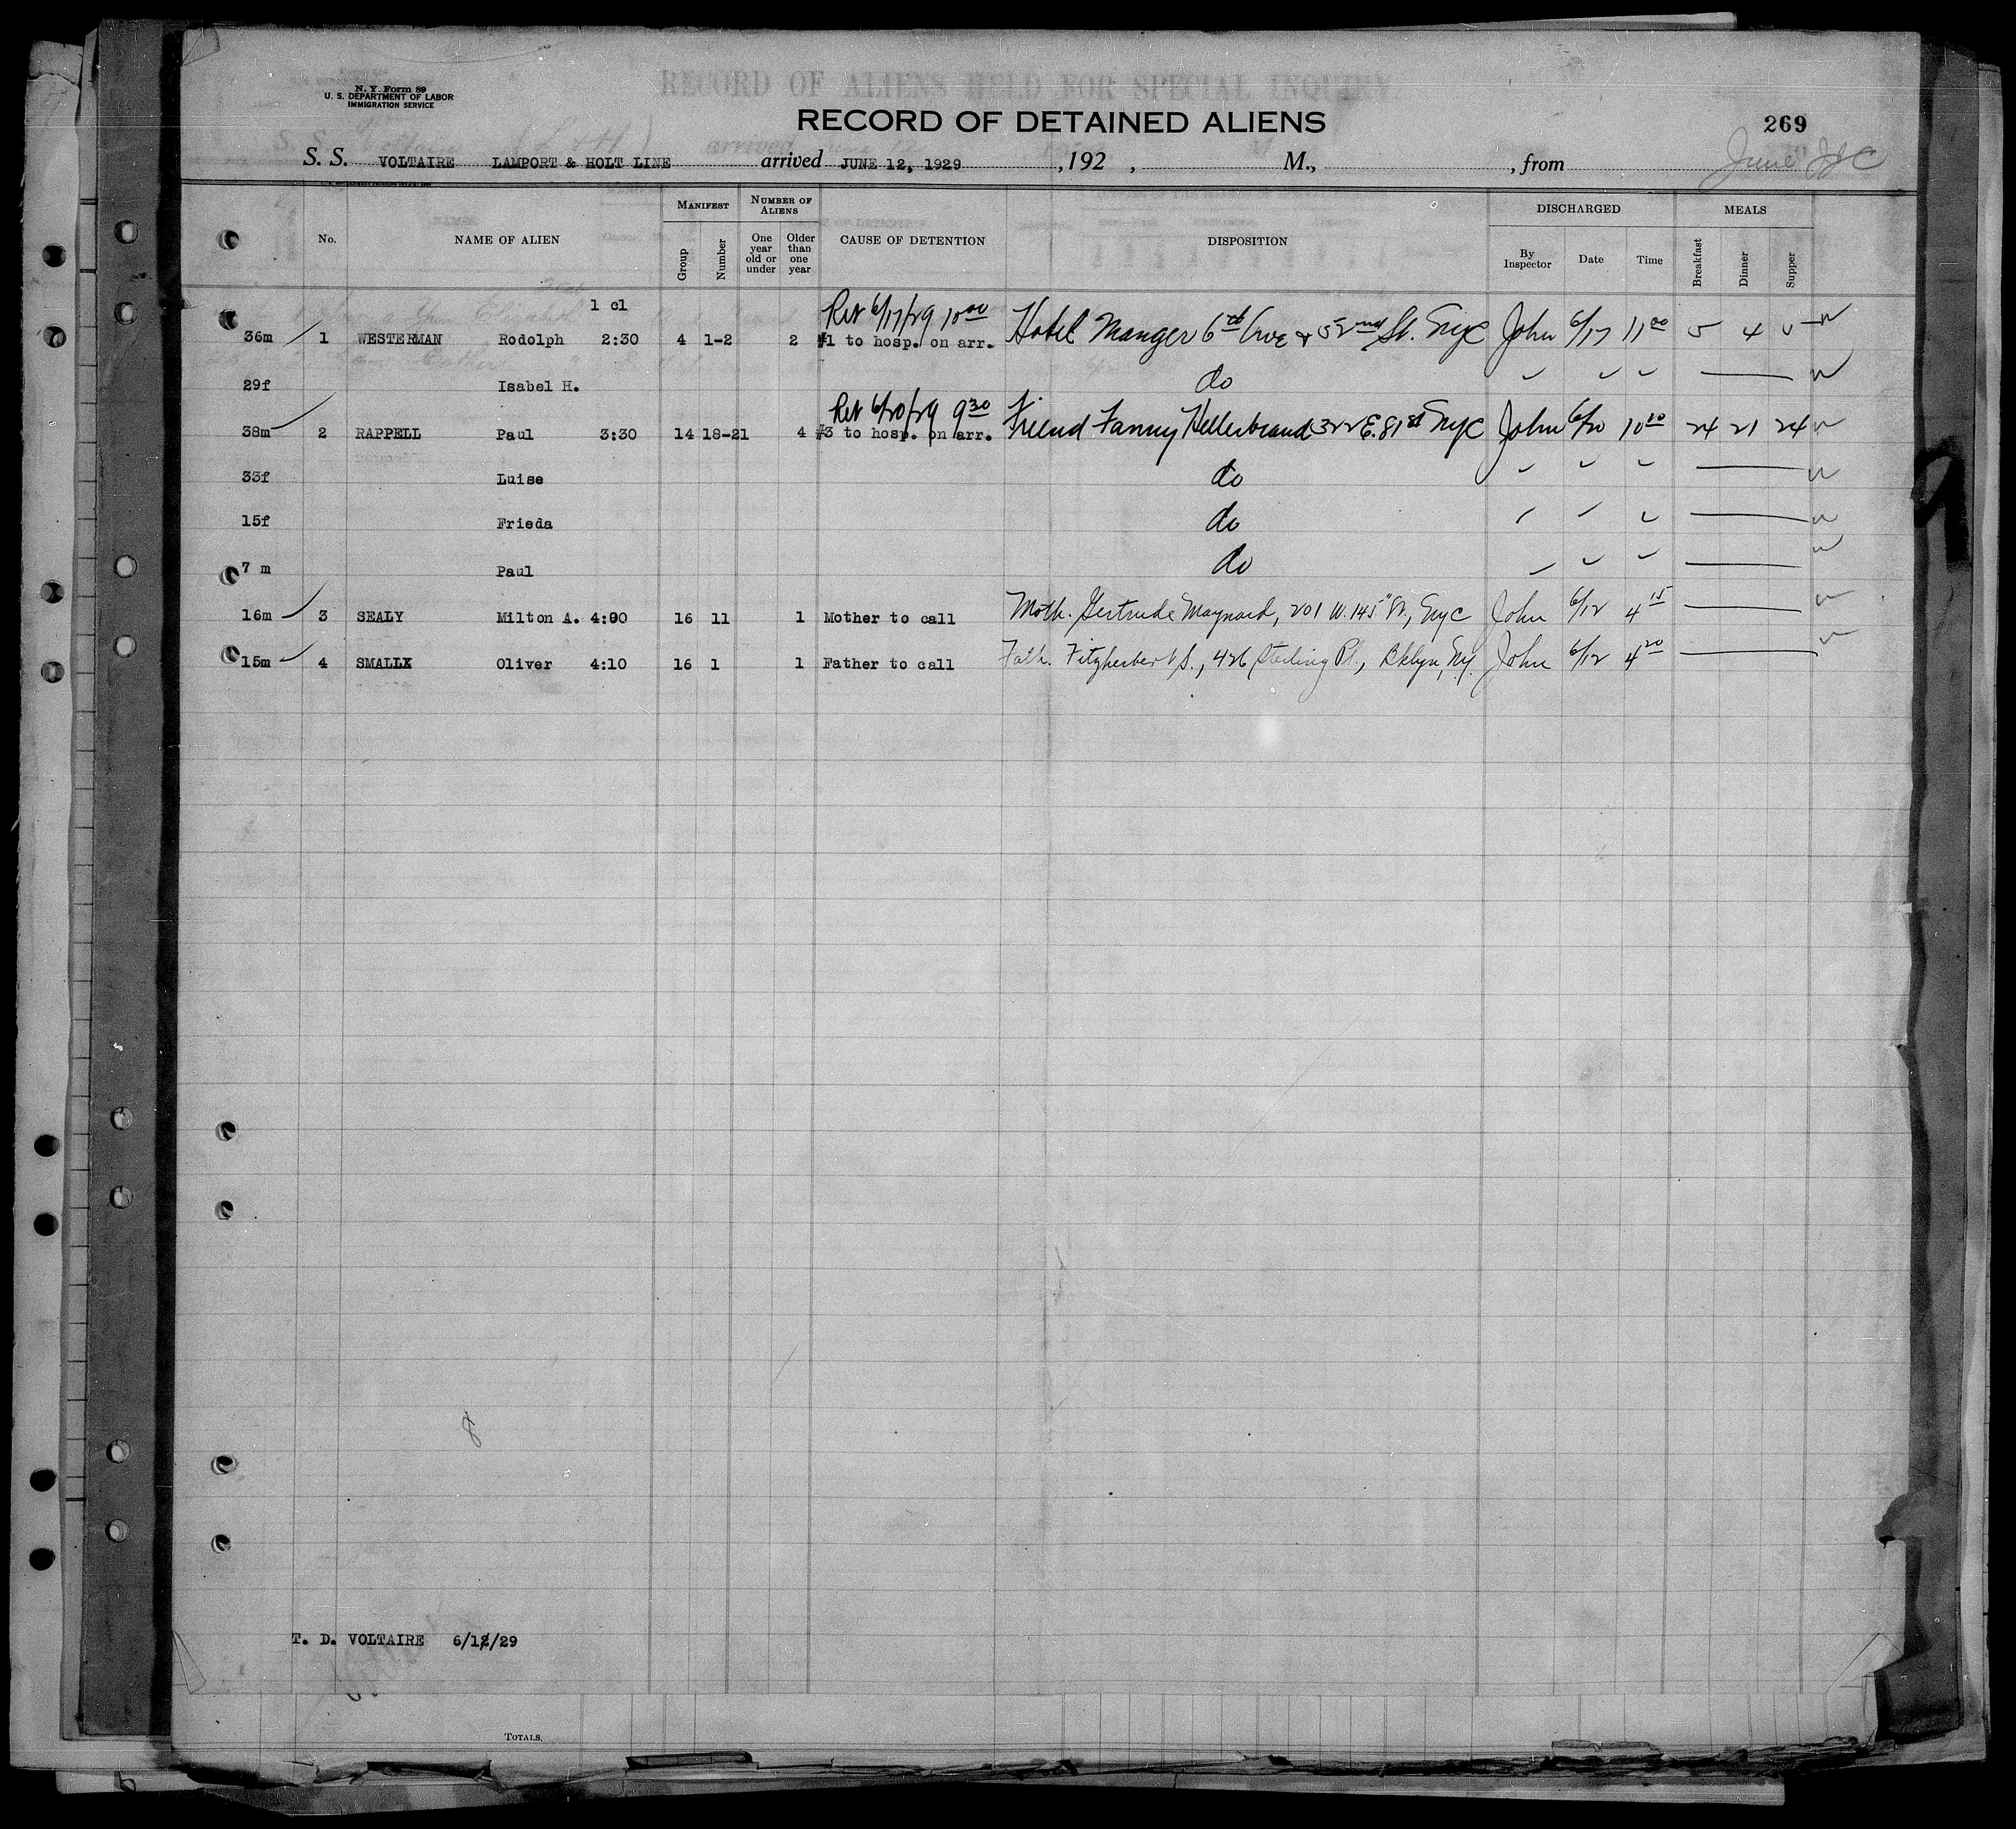 N. Y. Form 89
U. S. DEPARTMENT OF LABOR
IMMIGRATION SERVICE
RECORD OF ALIENS HELD FOR SPECIAL INQUIRY
RECORD OF DETAINED ALIENS
269
S. S. VOLTAIRE LAMPORT & HOLT LINE arrived JUNE 12, 1929 , 192 , M., , from June
MANIFEST NUMBER OF ALIENS DISCHARGED MEALS
No. NAME OF ALIEN Group Number One year old or under Older than one year CAUSE OF DETENTION DISPOSITION By Inspector Date Time Breakfast Dinner Supper
1 cl Ret 6/17/29 10 00
36m 1 WESTERMAN Rodolph 2:30 4 1-2 2 #1 to hosp. on arr. Hotel Manger 6th Ave & 52nd St. NYC John 6/17 11 00 5 4 5
29f Isabel H. do
Ret 6/20/29 9 30
38m 2 RAPPELL Paul 3:30 14 18-21 4 #3 to hosp. on arr. Friend Fanny Hellerbrand 322 E. 81 st NYC John 6/20 10 20 24 21 24
33f Luise do
15f Frieda do
7 m Paul do
16m 3 SEALY Milton A. 4:00 16 11 1 Mother to call Moth. Gertrude Maynard, 201 W. 145" St., NYC John 6/12 4 15
15m 4 SMALLX Oliver 4:10 16 1 1 Father to call Fath. Fitzherbert S., 426 Sterling Pl., Bklyn, NY. John 6/12 4 20
8
T. D. VOLTAIRE 6/12/29
TOTALS,